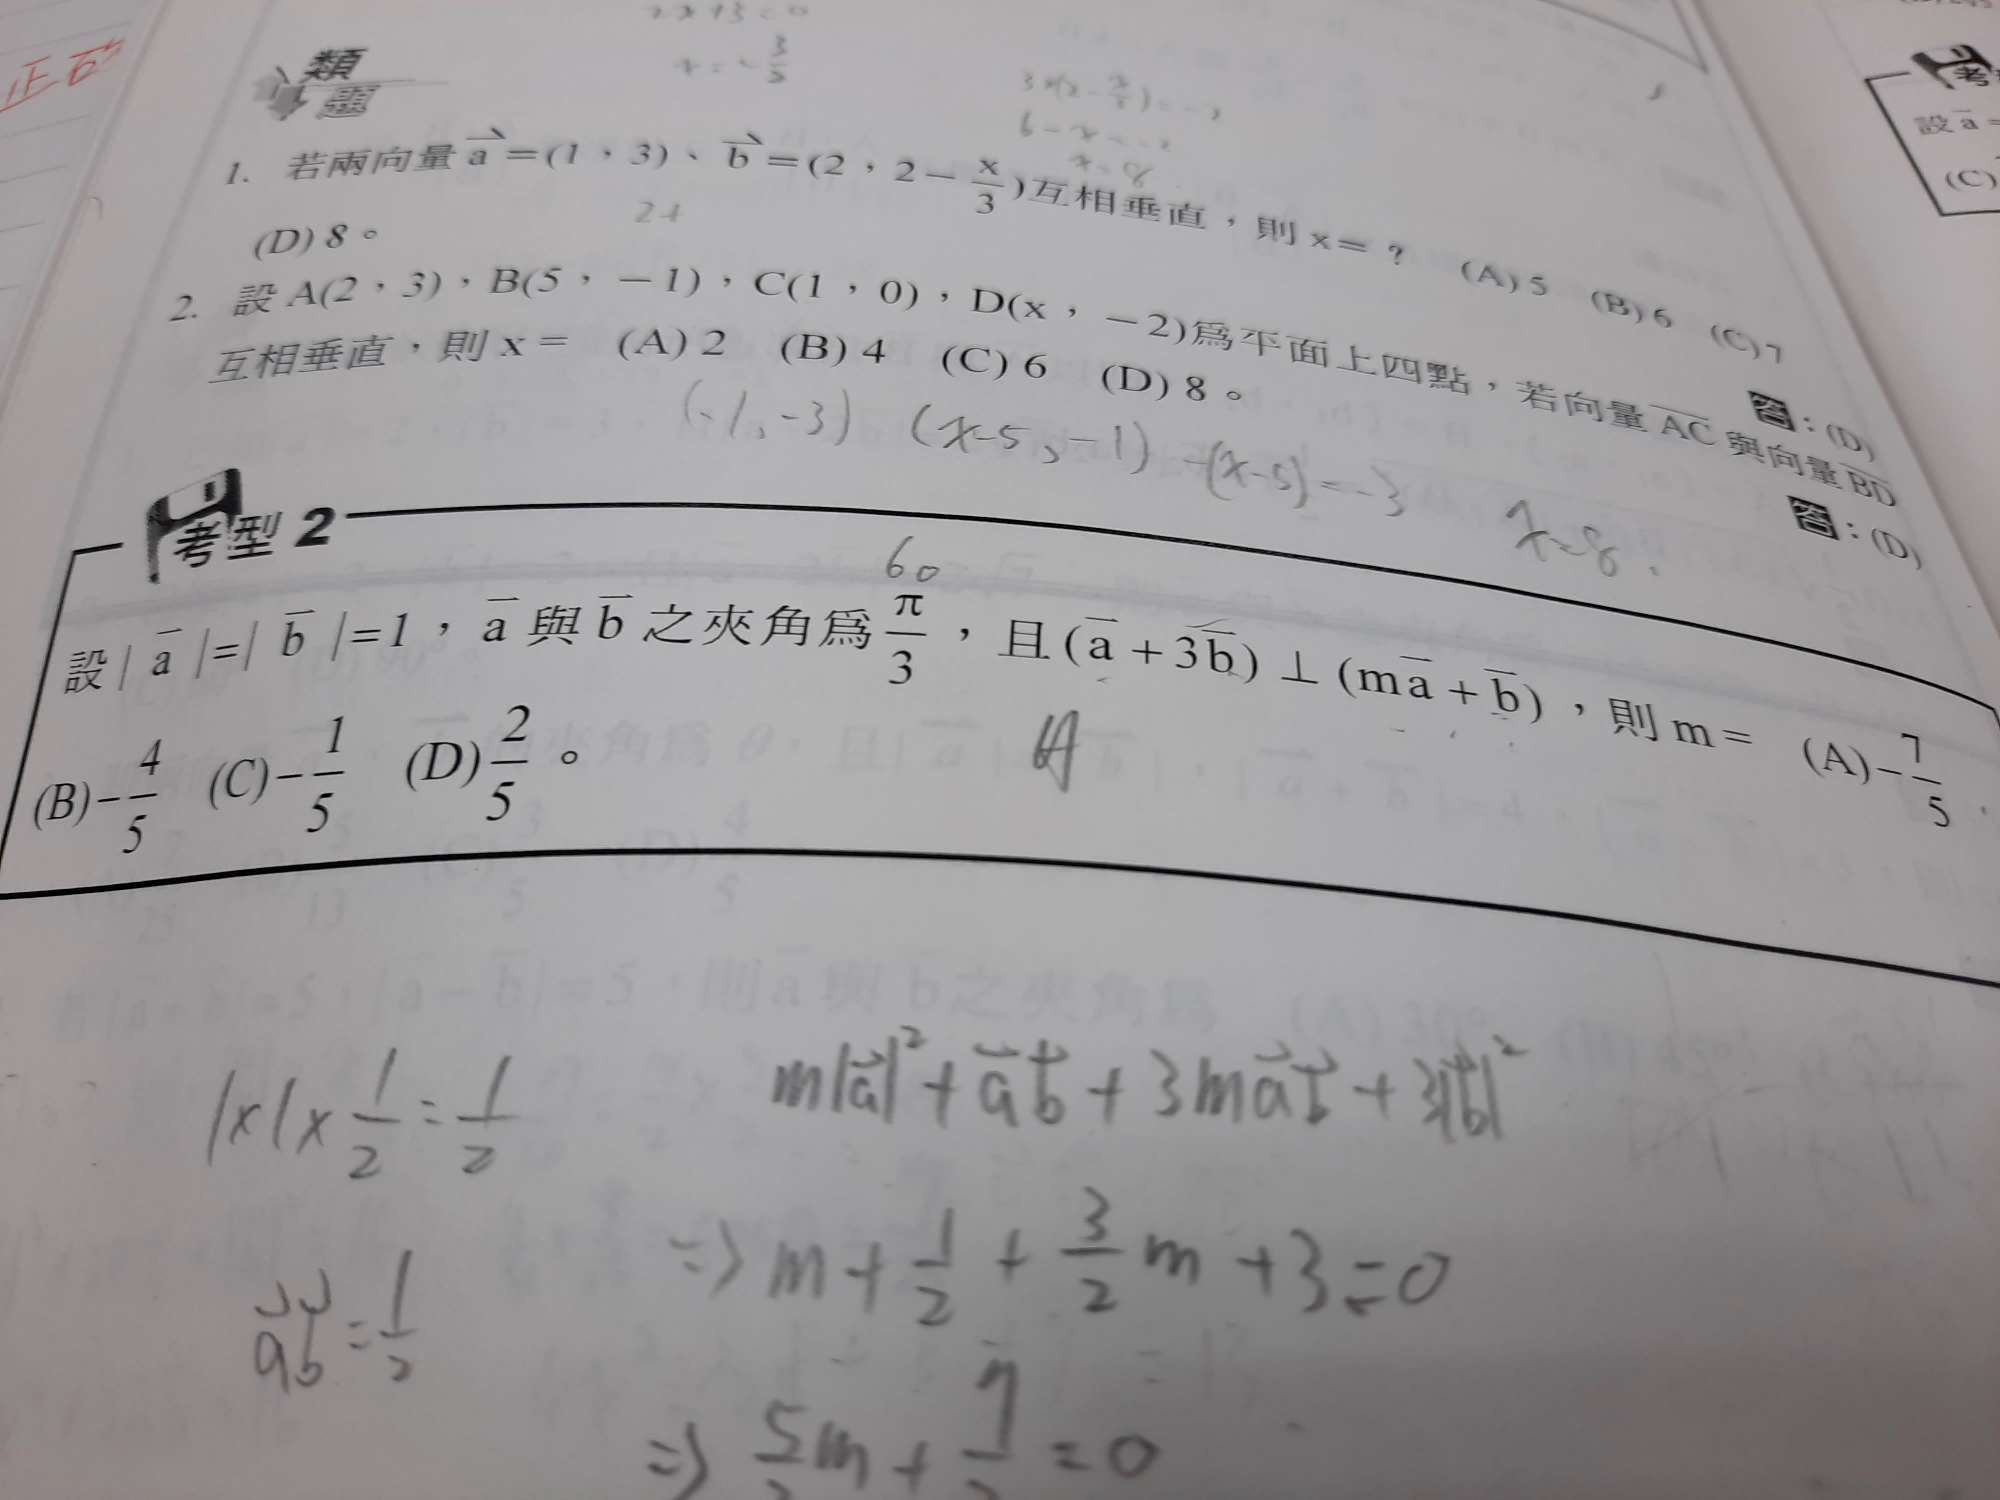 正确
類
題
x = -3/5
3×(2-x/3)=-2
6-x=-2
x=8
1. 若兩向量 a⃗=(1,3)、b⃗=(2,2-x/3)互相垂直,則 x=? (A)5 (B)6 (C)7
(D)8。
24
答:(D)
2. 設 A(2,3),B(5,-1),C(1,0),D(x,-2)爲平面上四點,若向量 AC 與向量 BD
互相垂直,則 x= (A)2 (B)4 (C)6 (D)8。
答:(D)
(-1,-3) (x-5,-1) -(x-5)=-3 x=8
考型 2
60
設|a|=|b|=1,a 與 b 之夾角爲 π/3,且(a+3b)⊥(ma+b),則 m= (A)-7/5
(B)-4/5 (C)-1/5 (D)2/5。
A
1×1×1/2=1/2
m|a⃗|²+a⃗b⃗+3ma⃗b⃗+3|b⃗|²
⇒m+1/2+3/2m+3=0
a⃗b⃗=1/2
⇒5/2m+7/2=0
考
設 a =
(C)